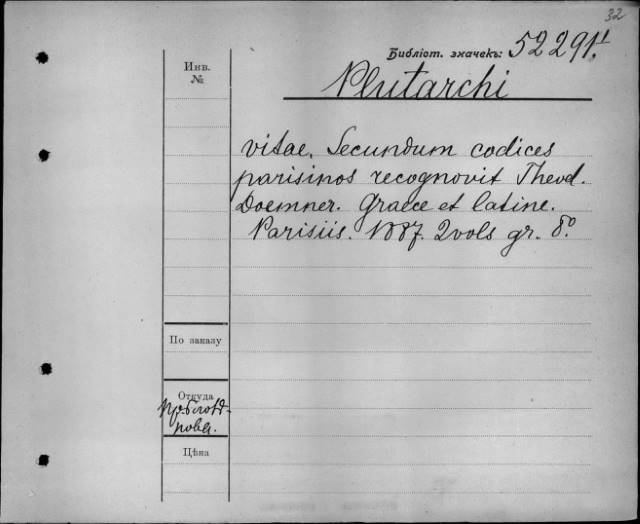 32
Библiот. значекъ: 52291.¹
Инв.
№
Plutarchi
vitae. Secundum codices
parisinos recognovit Theod.
Doemner. Graece et latine.
Parisiis. 1887. 2 vols gr. 8°
По заказу
Откуда
рова.
Цѣна